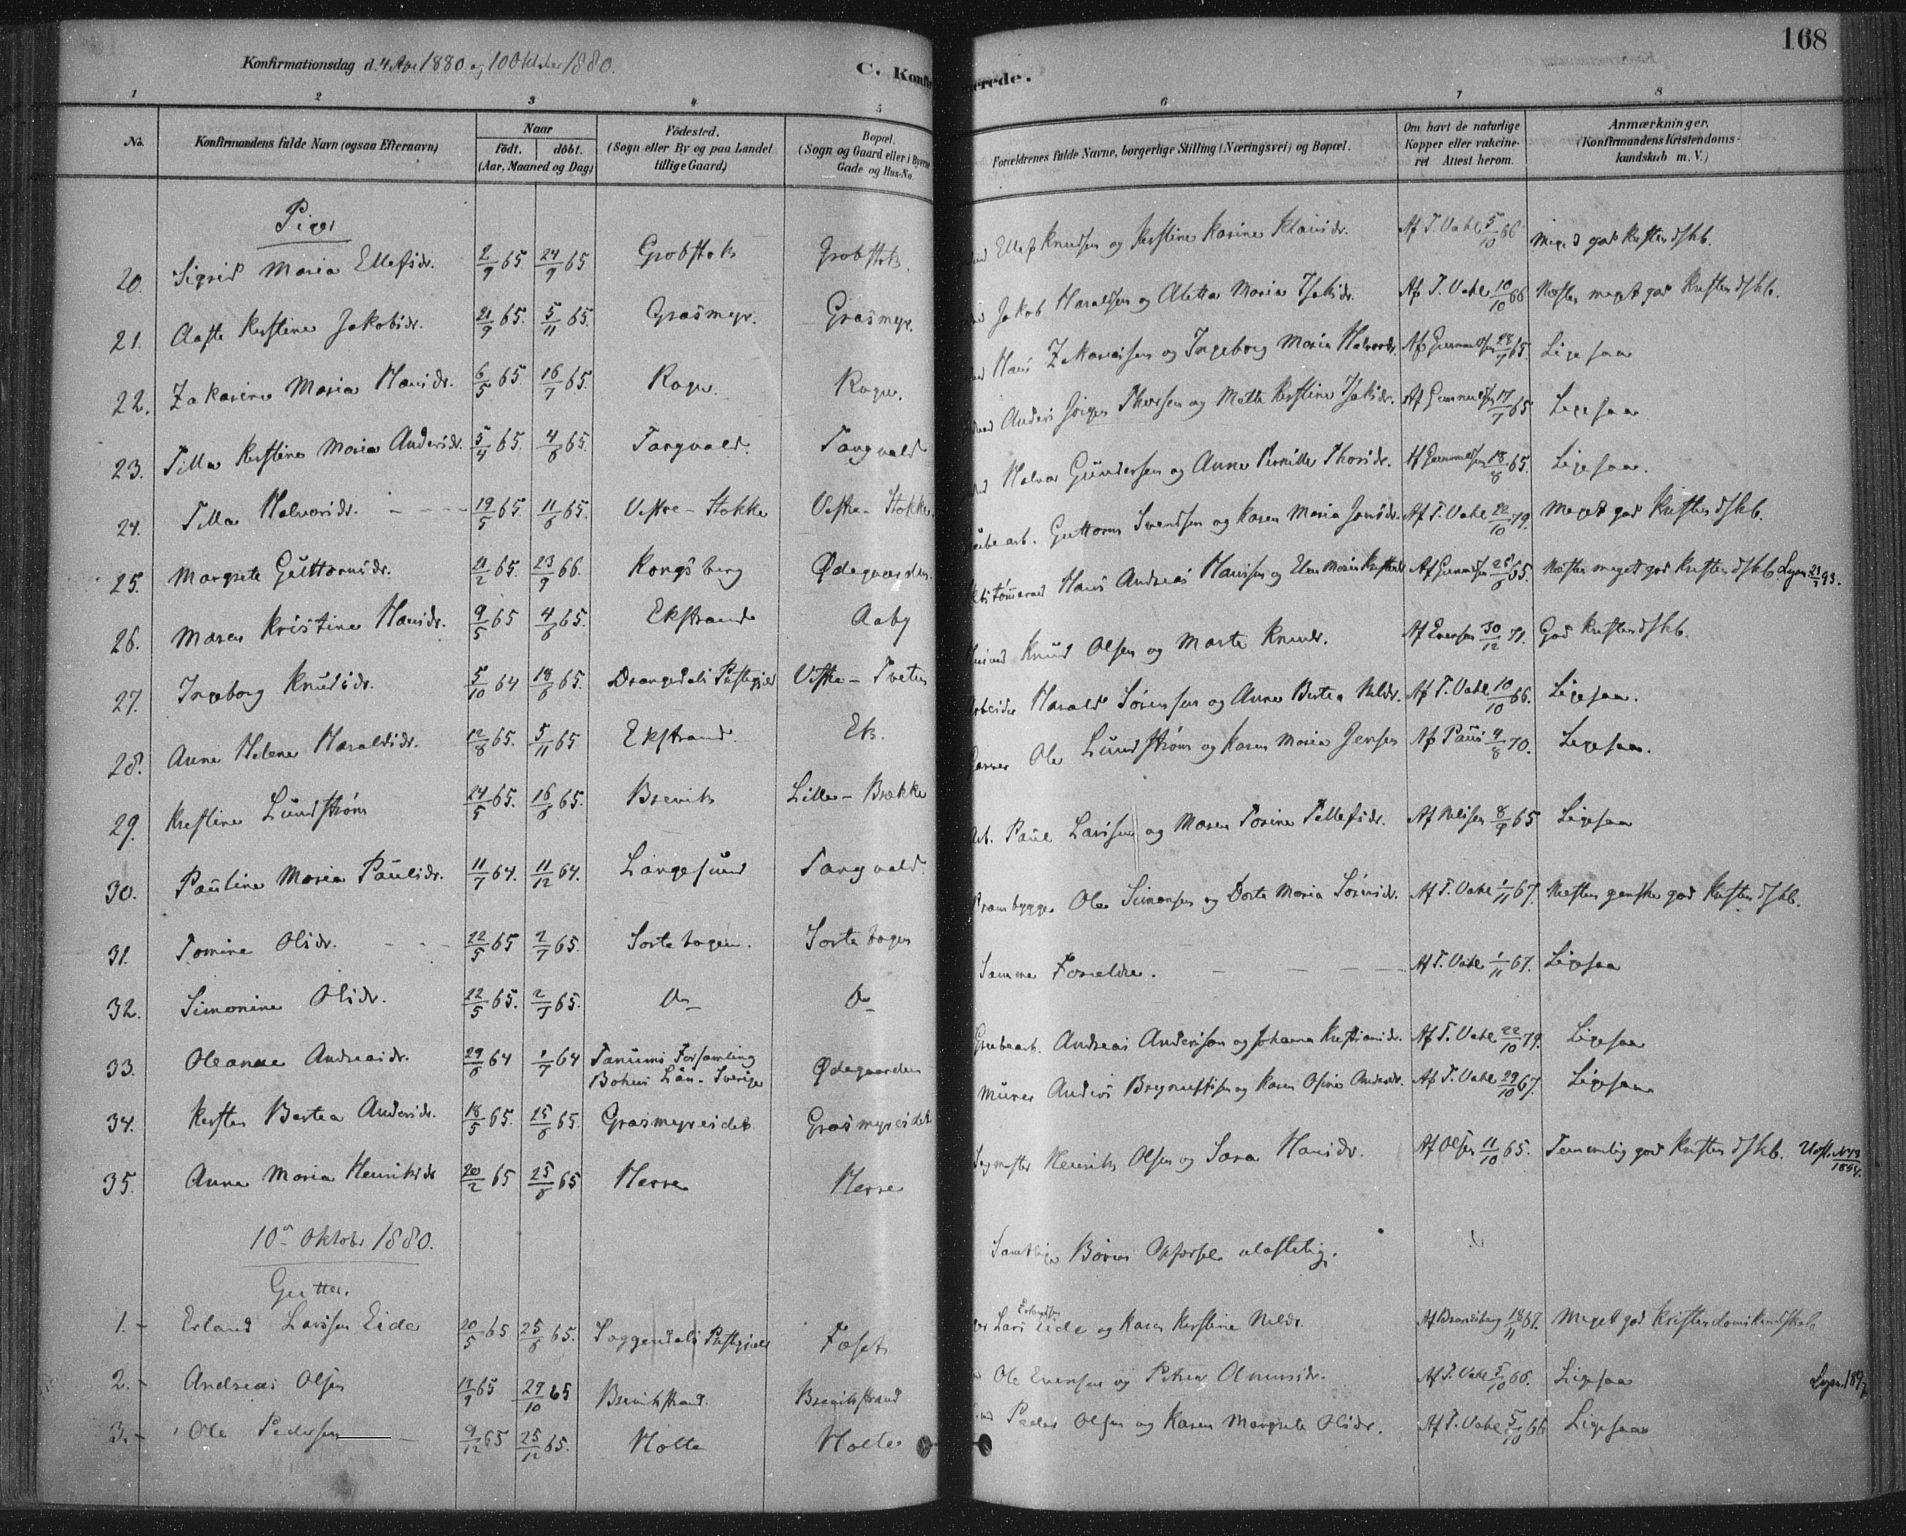 168
Konfirmationsdag d. 4 Apr 1880 og 10 Oktober 1880.
C. Konfirmerede.
1 2 3 4 5 6 7 8
No. Konfirmandens fulde Navn (ogsaa Efternavn) Naar födt. döbt. (Aar, Maaned og Dag) Födested. (Sogn eller By og paa Landet tillige Gaard) Bopæl. (Sogn og Gaard eller i Byerne Gade og Hus-No. Forældrenes fulde Navne, borgerlige Stilling (Næringsvei) og Bopæl. Om havt de naturlige Kopper eller vaccineret Attest herom. Anmærkninger. (Konfirmandens Kristendomskundskab m. V.)
Piger
20. Sigrid Maria Ellefsdr. 2/9 65 24/9 65 Grobstok Grobstok. Ellef Knudsen og Kirstine Karine Klausdr. Af T. Vahl 5/10 66 Meget god Kristendskb.
21. Aaste Kirstine Jakobsdr. 21/9 65. 5/11 65. Grasmyr. Grasmyr. Jakob Haraldsen og Aletta Maria Isaksdr. Af T. Vahl 10/10 66 Næsten meget god Kristendskb.
22. Zakarine Maria Hansdr. 6/5 65 16/7 65. Rogn. Rogn. Hans Zakariasen og Ingeborg Maria Halvorsdr. Af Gunnulfsen 65. Ligesaa
23. Tilla Kirstine Maria Andersdr. 5/4 65. 4/6 65. Tangvald. Tangvald Anders Jörgen Thorsen og Mette Kirstine Isaksdr. Af Gunnulfsen 17/7 65 Ligesaa
24. Tilla Halvorsdr. - - - 19/5 65. 11/6 65. Vestre-Stokke Vestre-Stokke. Halvor Gundersen og Anne Pernille Thorsdr. Af Gunnulfsen 18/8 65. Ligesaa.
25. Margrete Guttormsdr. 21/2 65. 23/9 66. Kongsberg Ødegaarden. Grubearb. Guttorm Svendsen og Karen Maria Jensdr. Af T. Vahl 22/10 79. Meget god Kristendskb.
26. Maren Kristine Hansdr. 9/5 65 4/6 65. Ekstrand Aaby Hans Andreas Hansen og Elen Maria Kristensdr. Af Gunnulfsen 65. Næsten meget god Kristendskb. Løsn. 93.
27. Ingeborg Knudsdr. 5/10 64 18/6 65. Drangedals Præstegjeld Vestre-Tveten Knud Olsen og Marte Knudsdr. Af Evensen 30/12 71. God Kristendskb.
28. Anne Helene Haraldsdr. 12/8 65. 5/11 65 Ekstrand Ek. Arbeider Harald Sörensen og Anne Bertea Nilsdr. Af T. Vahl 10/10 66. Ligesaa.
29. Kristine Lundström 24/5 65. 16/6 65. Brevik Lille-Brække Garver Ole Lundström og Karen Maria Jensen Af Paus 9/8 70. Ligesaa.
30. Pauline Maria Paulsdr. 11/7 64. 11/12 64. Langesund Tangvald. Arb. Paul Larsen og Maren Torine Tellefsdr. Af Nilsen 8/9 65 Ligesaa
31. Tomine Olsdr. - - - 22/5 65 2/7 65. Sortebogen. Sortebogen Prambygger Ole Simonsen og Dorte Maria Sörensdr. Af T. Vahl 1/11 67. Næsten ganske god Kristendskb.
32. Simonine Olsdr. 22/5 65. 2/7 65. Do Do Samme Forældre. - - - Af T. Vahl 1/11 67. Ligesaa
33. Oleanae Andreasdr. 29/6 64 1/7 64 Tanums Forsamling Bohus Län-Sverige Ødegaarden Grubearb. Andreas Anderson og Johanna Kristiansdr. Af T. Vahl 22/10 79. Ligesaa
34. Kirsten Bertea Andersdr. 18/5 65. 25/6 65. Grasmyreidet Grasmyreidet Murer Anders Brynulfsen og Karen Olsine Andersdr. Af T. Vahl 29/10 67. Ligesaa
35. Anne Maria Henriksdr 20/2 65 25/6 65 Herre Herre Sagmester Henrik Olsen og Sara Hansdr. Af Olsen 11/10 65. Temmelig god Kristendskb. Udst. No 13/1884.
10de Oktober 1880.
Gutter.
Samtlige Börns Opførsel ulastelig.
1. - Erland Larsen Eide 20/5 65 25/6 65. Soggendals Præstegjeld Foset Lars Erlandsen Eide og Karen Kirstine Nilsdr. Af Brandsberg 18/11 67. Meget god Kristendomskundskab
2. - Andreas Olsen 13/9 65 29/10 65 Brevikstrand. Brevikstrand Ole Evensen og Petrea Olausdr. Af T. Vahl 5/10 66. Ligesaa Løsn. 1897
3. - Ole Pedersen 9/12 65 25/12 65. Holte Holte Peder Olsen og Karen Margrete Olsdr. Af T. Vahl 5/10 66 Ligesaa